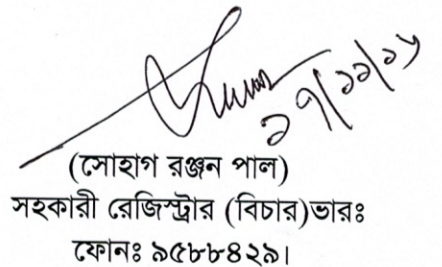 ২৭/১১/১৮
(সোহাগ রঞ্জন পাল)
সহকারী রেজিস্ট্রার (বিচার)ভারঃ
ফোনঃ ৯৫৮৮৪২৯।